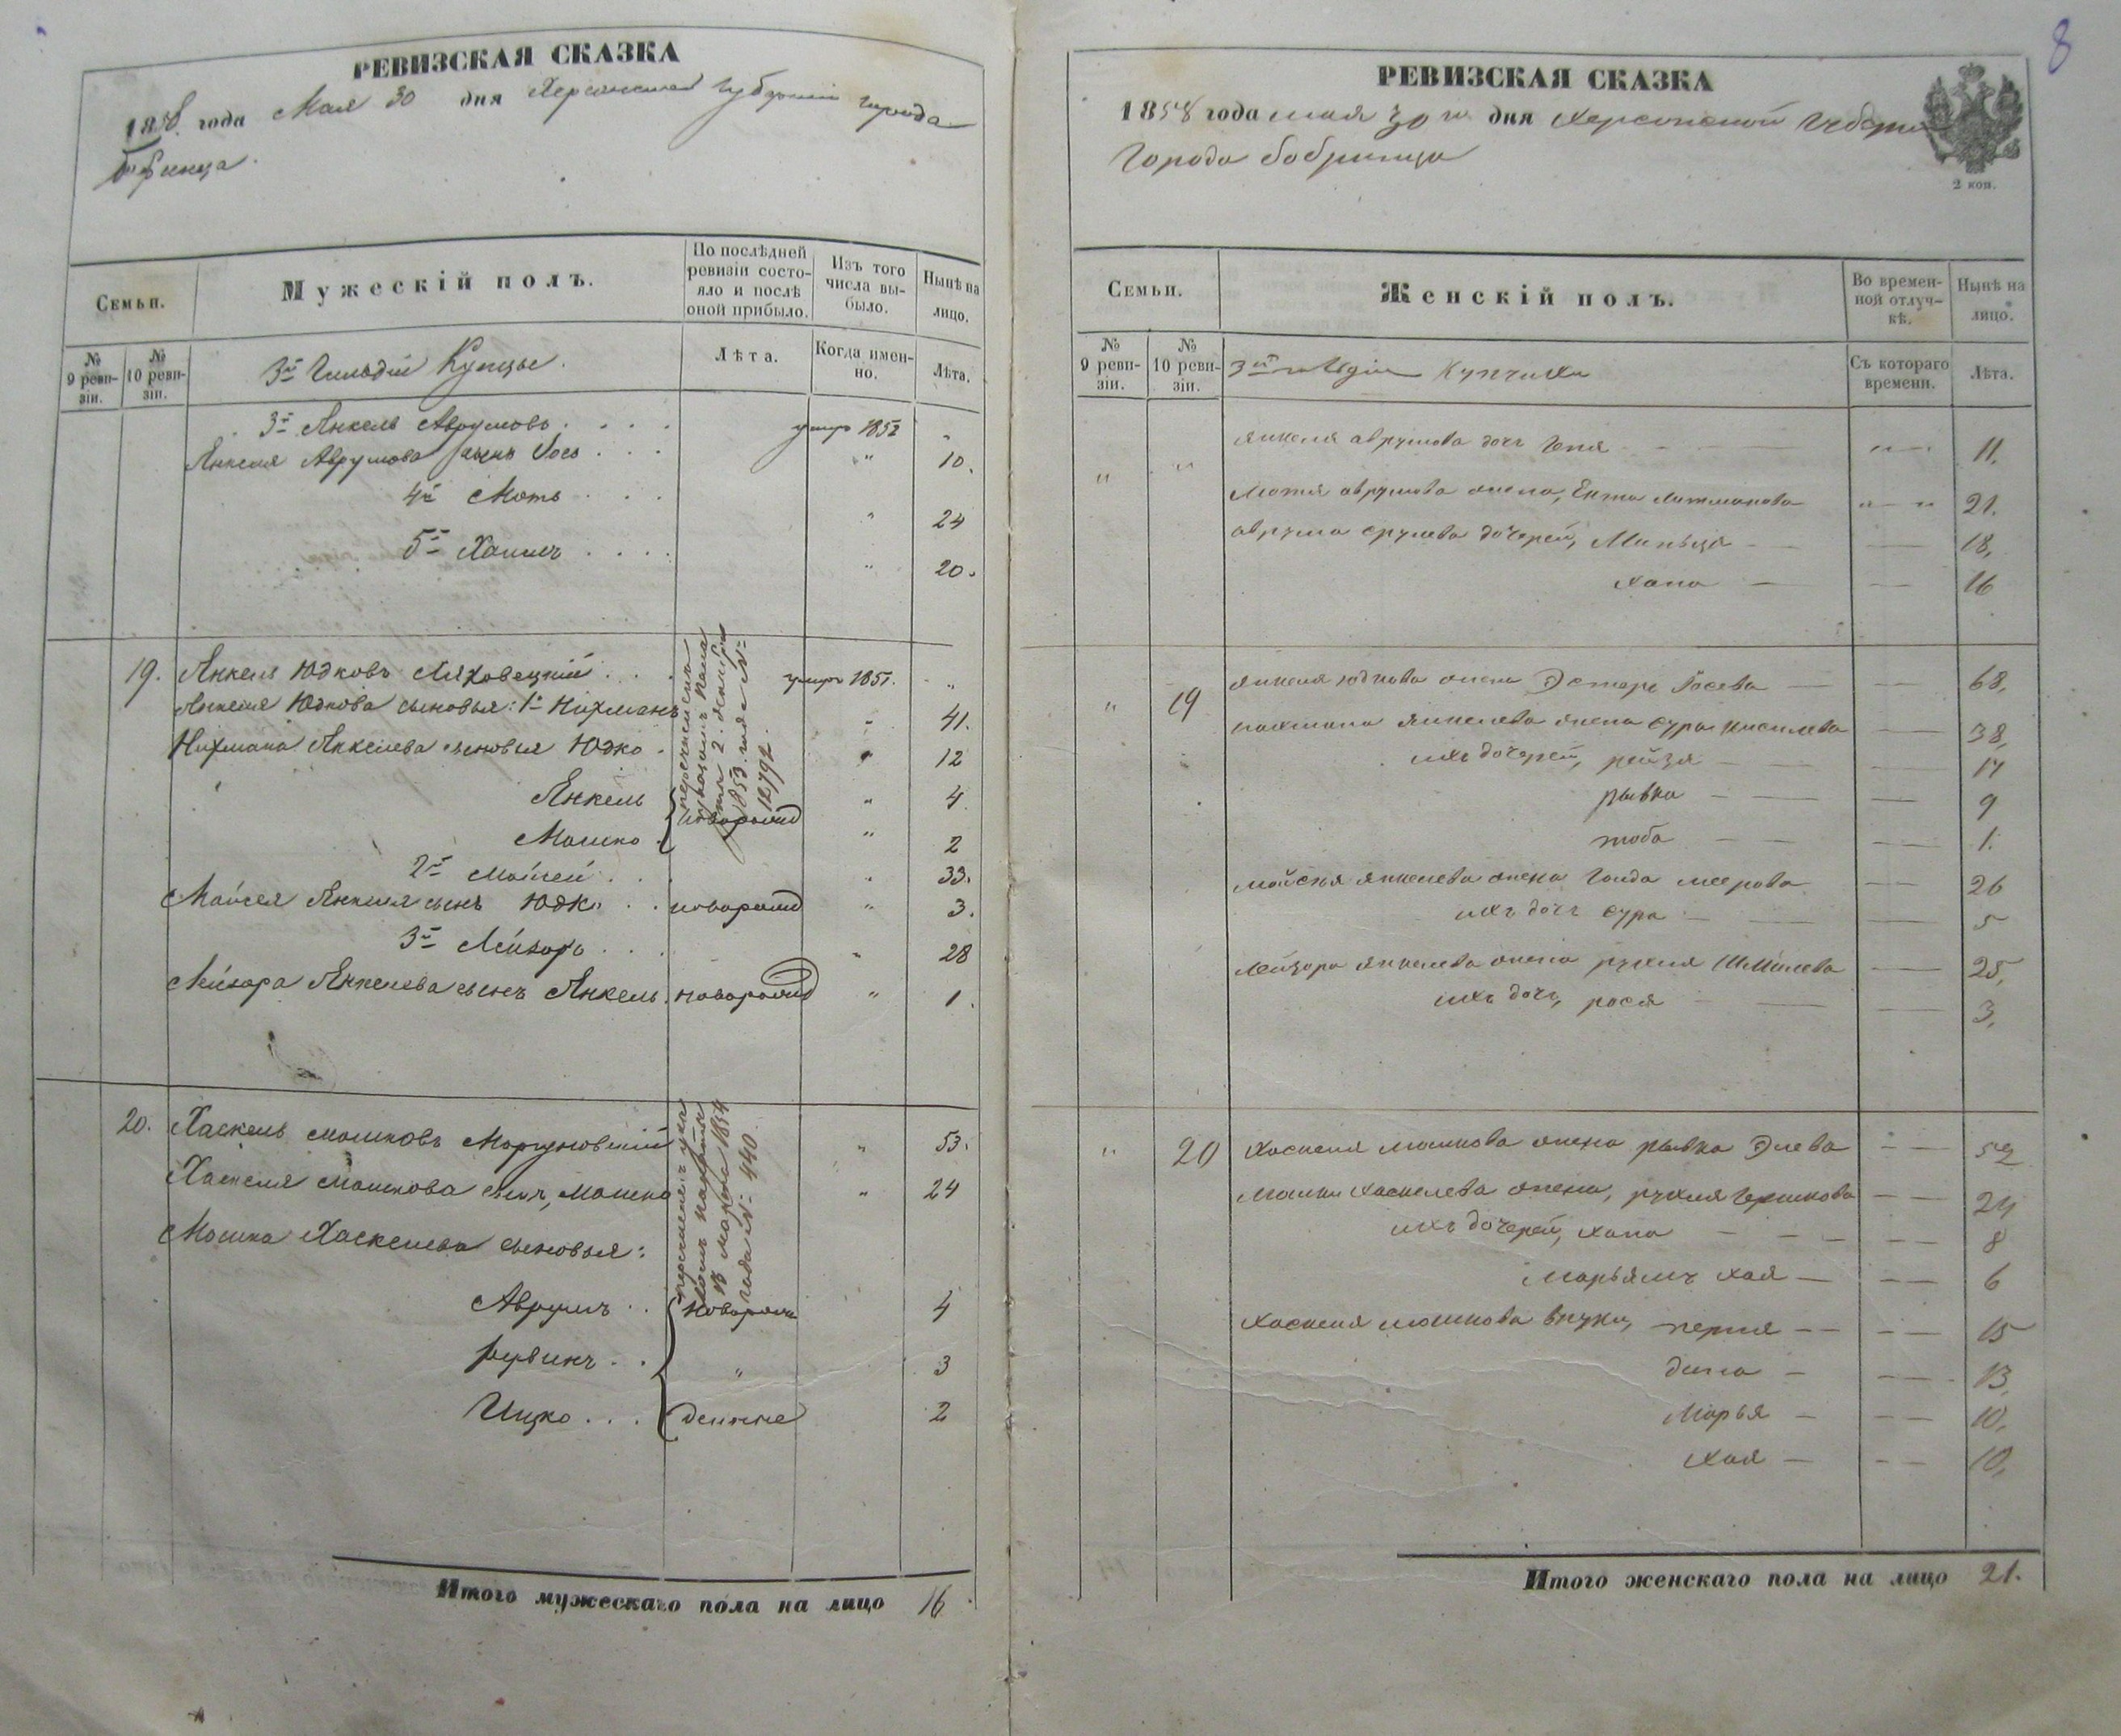 РЕВИЗСКАЯ СКАЗКА
1858 года Мая 30 дня Херсонской Губернии города
Бобринца.
Семьи.
Мужескій полъ.
По послѣдней ревизіи состояло и послѣ оной прибыло.
Изъ того числа выбыло.
Нынѣ на лицо.
№ 9 ревизіи.
№ 10 ревизіи.
3й Гильдіи Купцы.
Лѣта.
Когда именно.
Лѣта.
3й Янкель Аврумовъ . . . . умеръ 1852 "
Янкеля Аврумова сынъ Іось . . . " 10.
4й Моть . . . " 24
5й Хаимъ . . . . " 20.
19. Янкель Юдковъ Ляховецкій . . . умеръ 1851. "
Янкеля Юдкова сыновья: 1й Нихманъ " 41.
Нихмана Янкелева сыновья Юдко . " 12
Янкель новорожд " 4
Мошко . " 2
2й Мойсей . . . " 33.
Мойсея Янкеля сынъ Юдко . . новорожд " 3.
3й Лейзоръ . . . " 28
Лейзора Янкелева сынъ Янкель. новорожд " 1.
перечислены
указомъ
2 декабря
1853 года №
12792.
20. Хаскель Мошковъ " 53.
Хаскеля Мошкова сынъ, Мошко " 24
Мошка Хаскелева сыновья:
Аврумъ . . новорож 4
Рувинъ . . " 3
Ицко . . . денные 2
марта 1854
года № 440
Итого мужескаго пола на лицо 16
8
РЕВИЗСКАЯ СКАЗКА
1858 года мая 30 го дня Херсонской Губерніи
Города Бобринца
2 коп.
Семьи.
Женскій полъ.
Во временной отлучкѣ.
Нынѣ на лицо.
№ 9 ревизіи.
№ 10 ревизіи.
3й гильдіи Купчихи
Съ котораго времени.
Лѣта.
Янкеля Аврумова дочь Геня 11.
Мотя Аврумова жена, Ента 21.
Аврума Срулева дочерей, Миньця 18,
Хана 16
" 19 Янкеля Юдкова жена Эстеръ Іосева 68,
Нахмана Янкелева жена Сура 38,
ихъ дочерей, Рейзя 17
Рывка 9
Тоба 1.
Мойсея Янкелева жена Голда Меерова 26
ихъ дочь Сура 5
Лейзора Янкелева жена Рухля Шмилева 25,
ихъ дочь, Рося 3,
" 20 Хаскеля Мошкова жена Рывка Элева 52
Мошки Хаскелева жена, Рухля Гершкова 24
ихъ дочерей, Хана 8
Марьямъ Хая 6
Хаскеля Мошкова внуки, Перля 15
Дина 13,
Марья 10,
Хая 10,
Итого женскаго пола на лицо 21.